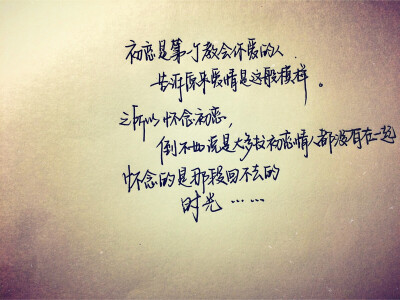 初恋是第一个教会你爱的人
告诉你原来爱情是这般模样。
之所以怀念初恋,
倒不如说是大多数初恋情人都没有在一起
怀念的是那段回不去的
时光……